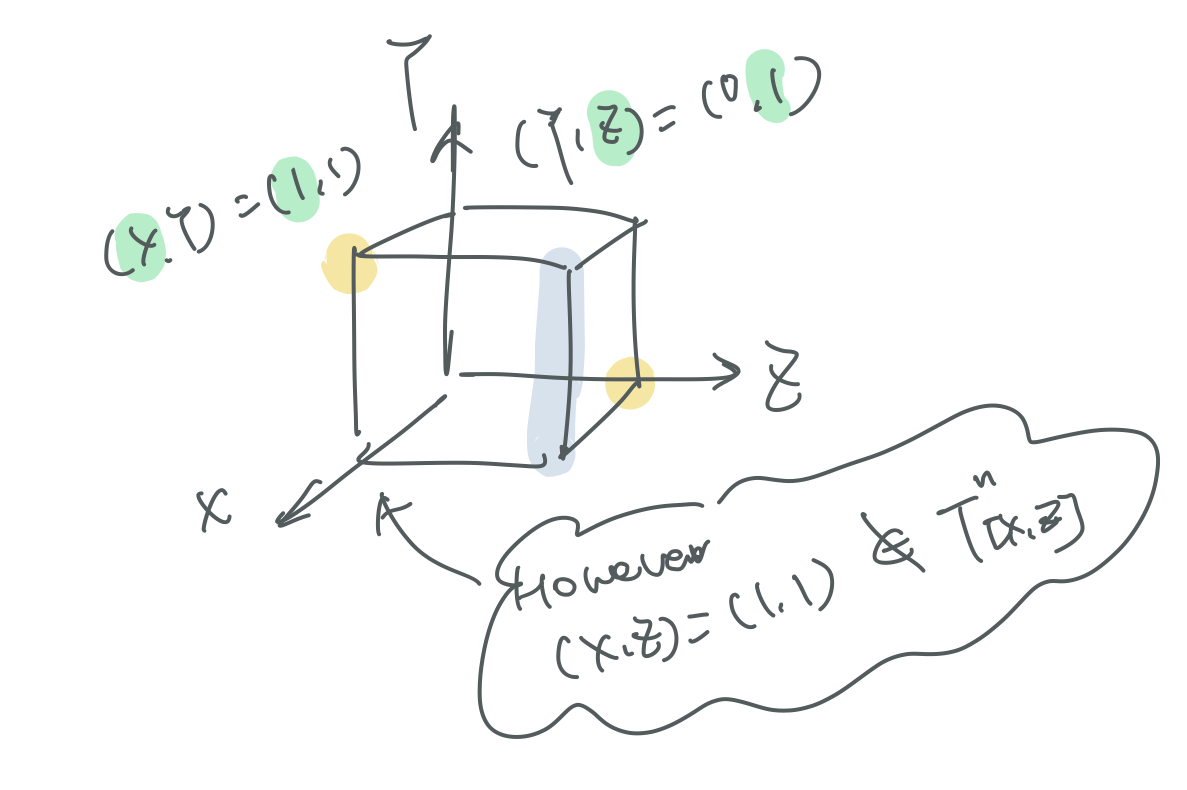 Y
(Y,Z)=(0,1)
(X,Y)=(1,1)
Z
X
However
(X,Z)=(1,1) ∉ T^n_[X,Z]